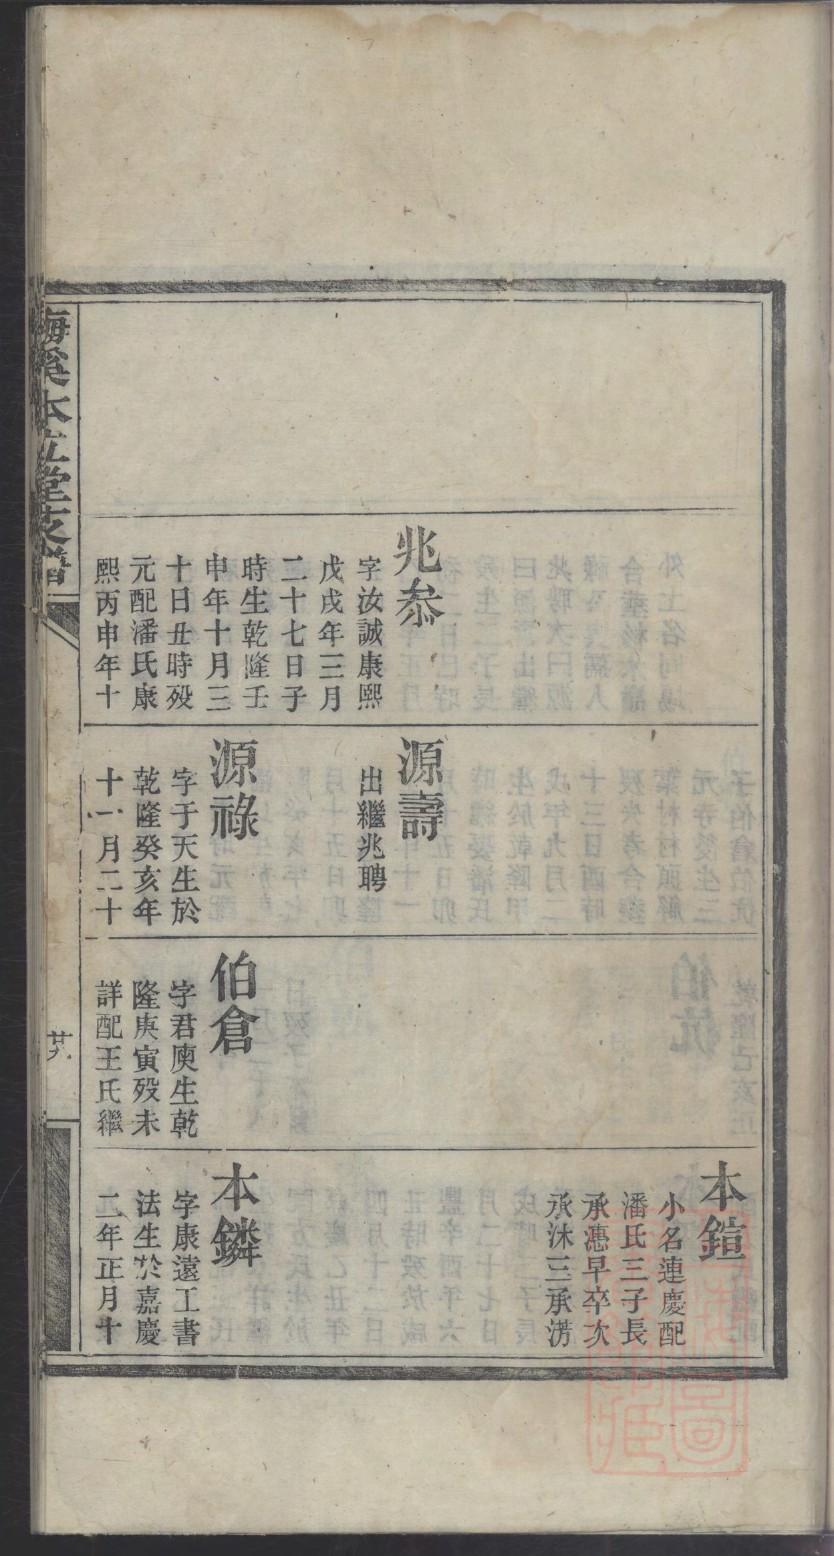 兆叅
字汝誠康熙
戊戌年三月
二十七日子
時生乾隆壬
申年十月三
十日丑時殁
元配潘氏康
熙丙申年十
源壽
出繼兆聘
源祿
字于天生於
乾隆癸亥年
十一月二十
伯倉
字君庾生乾
隆庚寅殁未
詳配王氏繼
本鎧
小名連慶配
潘氏三子長
承慿早卒次
承沐三承淓
本鏻
字康遠工書
法生於嘉慶
二年正月十
梅溪本立堂支譜
廿八